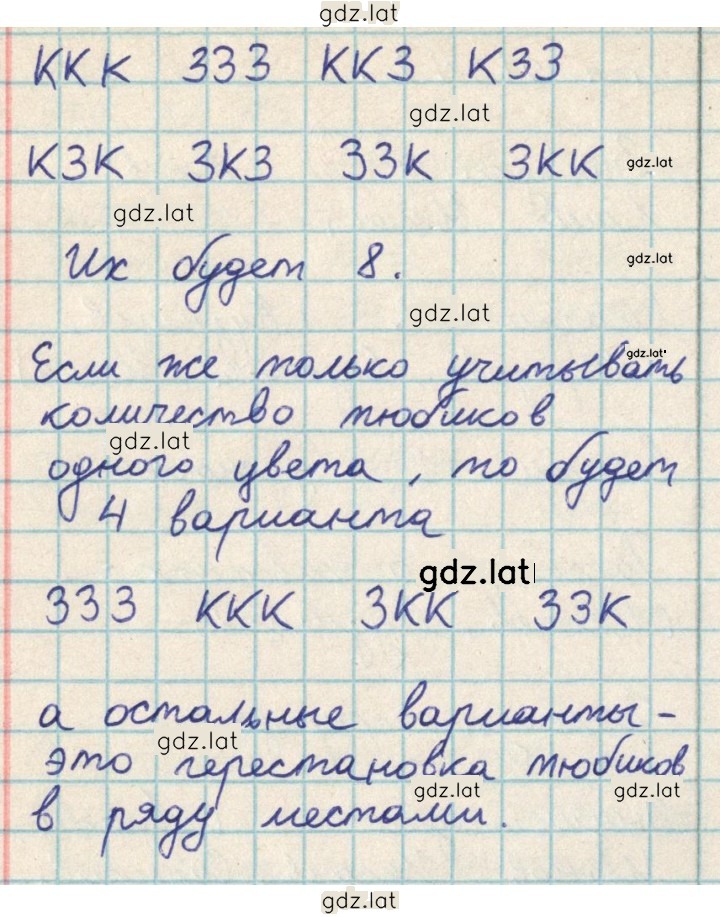 gdz.lat
ККК ЗЗЗ ККЗ КЗЗ
gdz.lat
КЗК ЗКЗ ЗЗК ЗКК gdz.lat
gdz.lat
Их будет 8. gdz.lat
gdz.lat
gdz.lat
Если же только учитывать
количество тюбиков
gdz.lat
одного цвета, то будет
4 варианта
gdz.lat
ЗЗЗ ККК ЗКК ЗЗК
а остальные варианты -
gdz.lat
это перестановка тюбиков
gdz.lat gdz.lat
в ряду местами.
gdz.lat